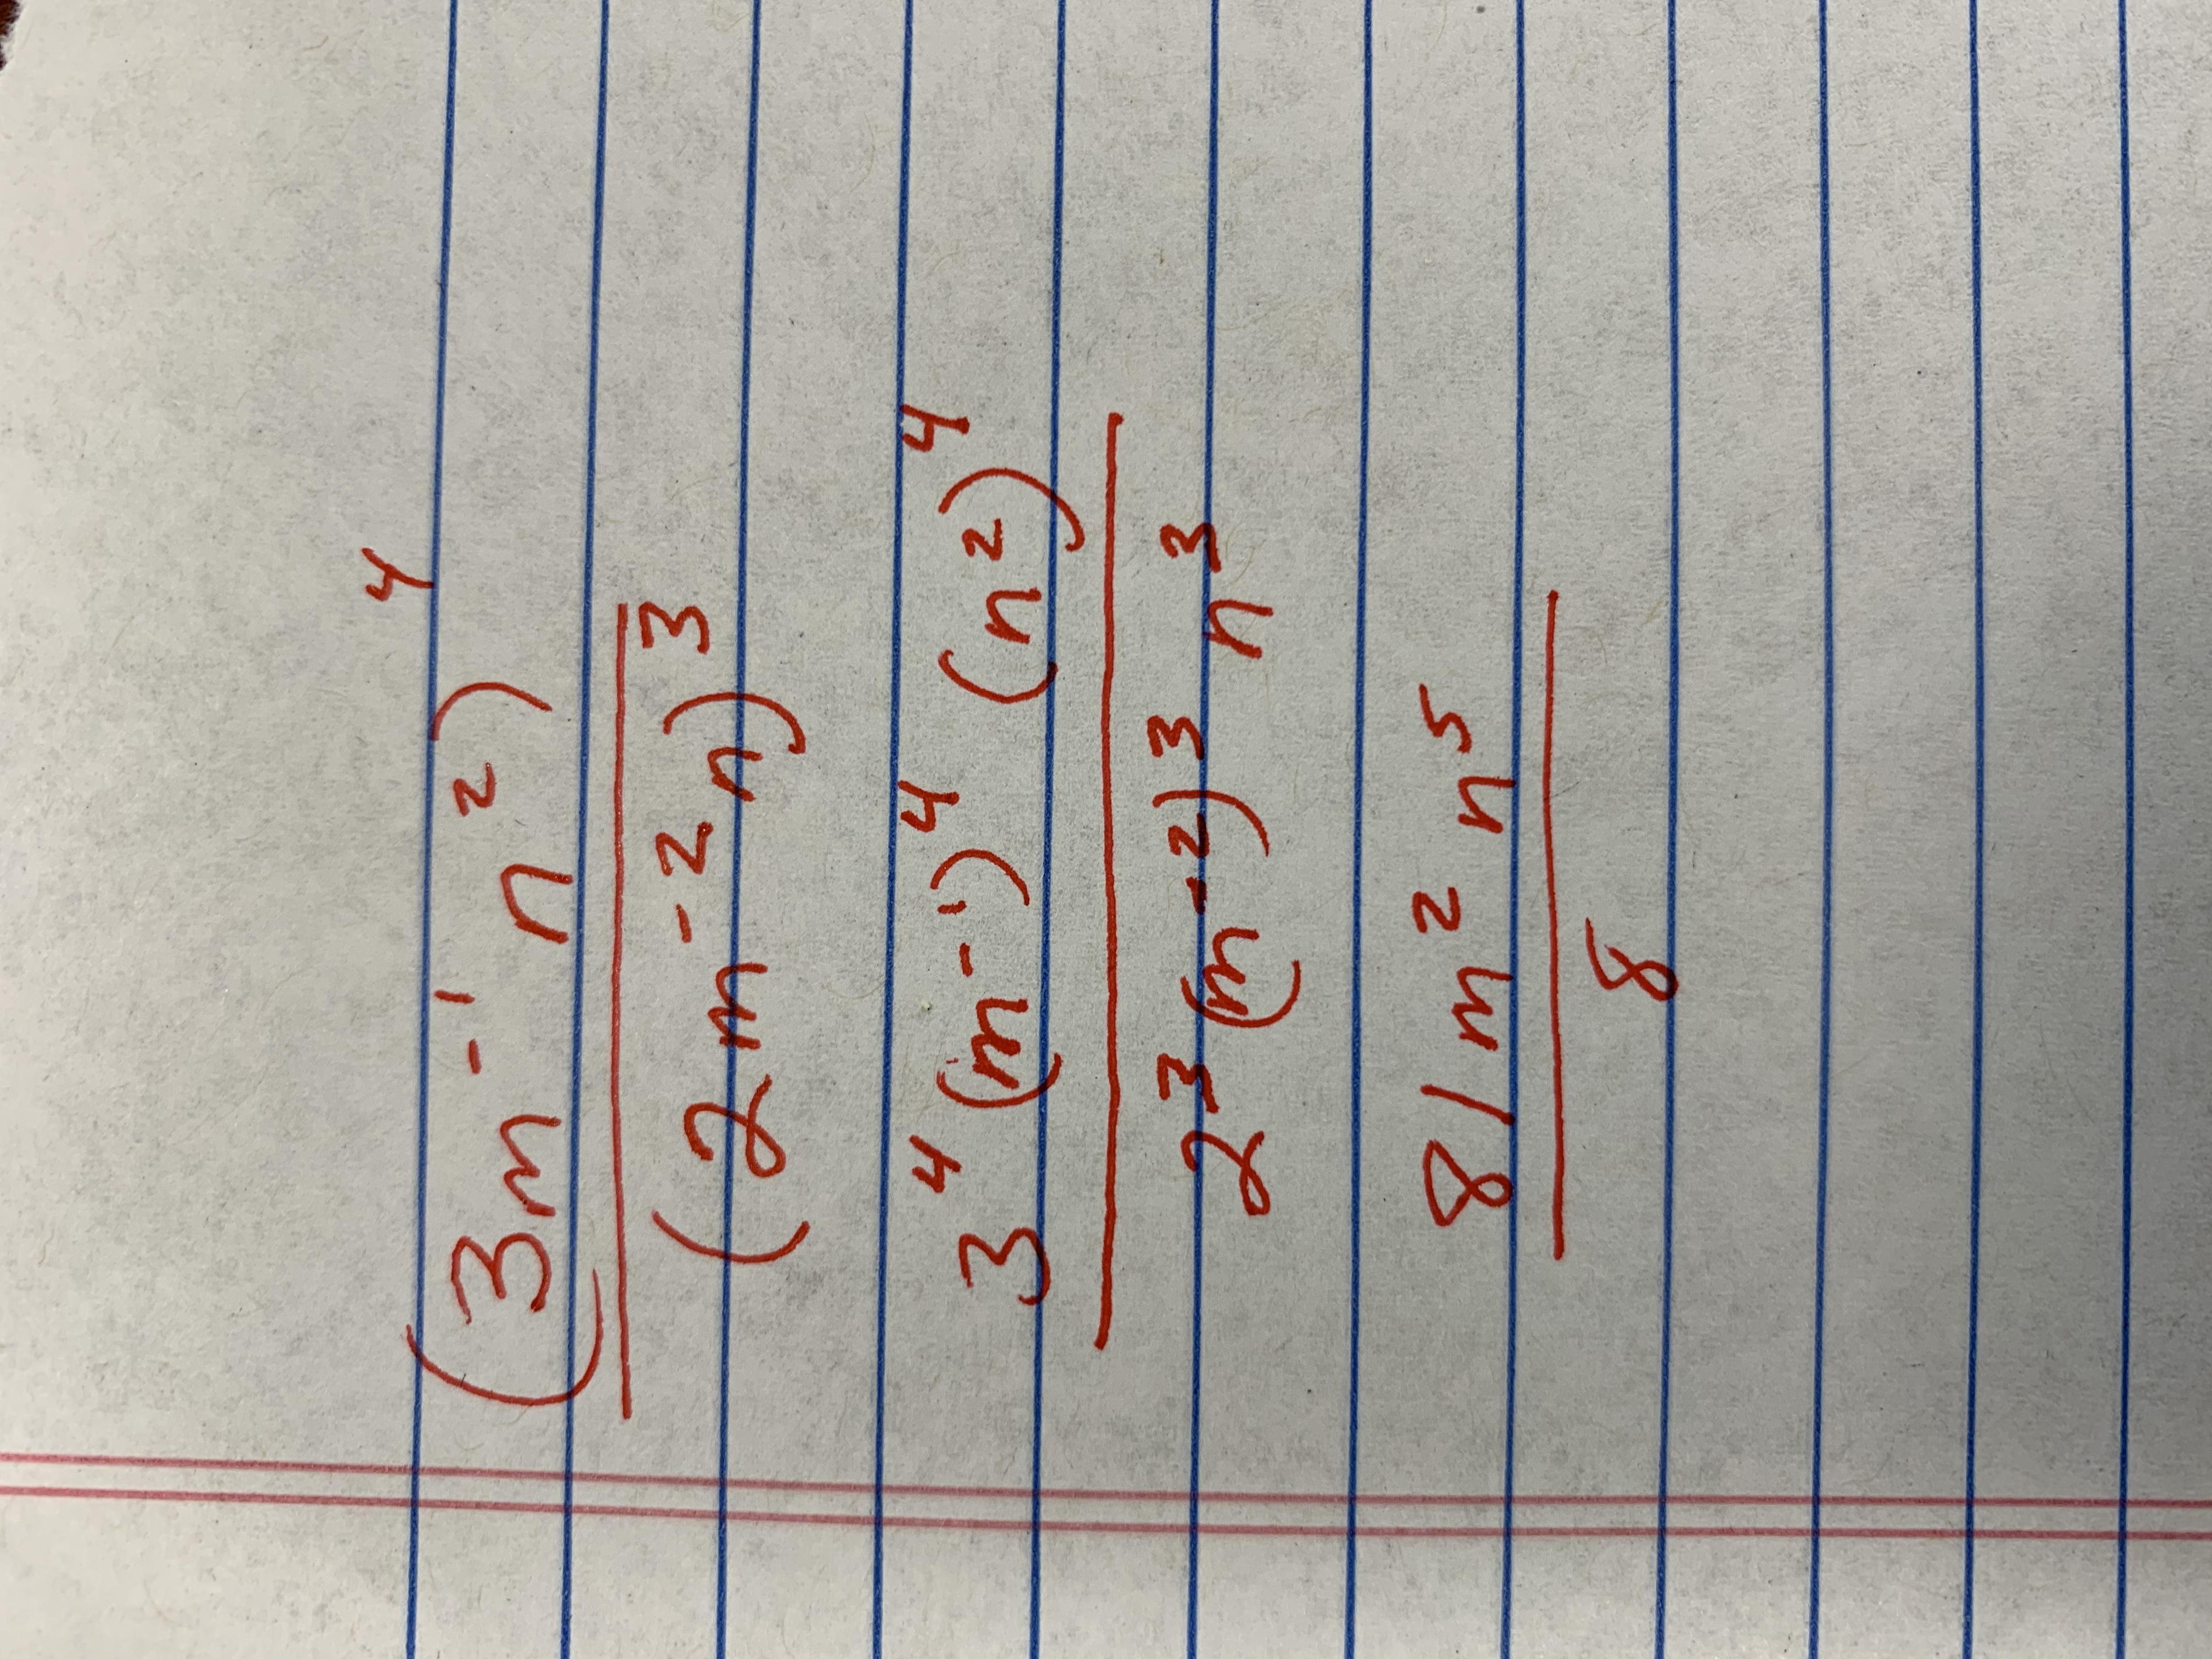 (3m⁻¹ n²)⁴
(2m⁻²n)³
3⁴ (m⁻¹)⁴ (n²)⁴
2³ (m⁻²)³ n³
81m² n⁵
8